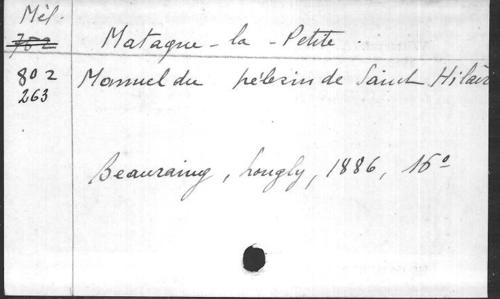 Mél.
782
Matagne-la-Petite.
802 Manuel du pélerin de Saint Hilaire
263
Beauraing, 1886, 16º